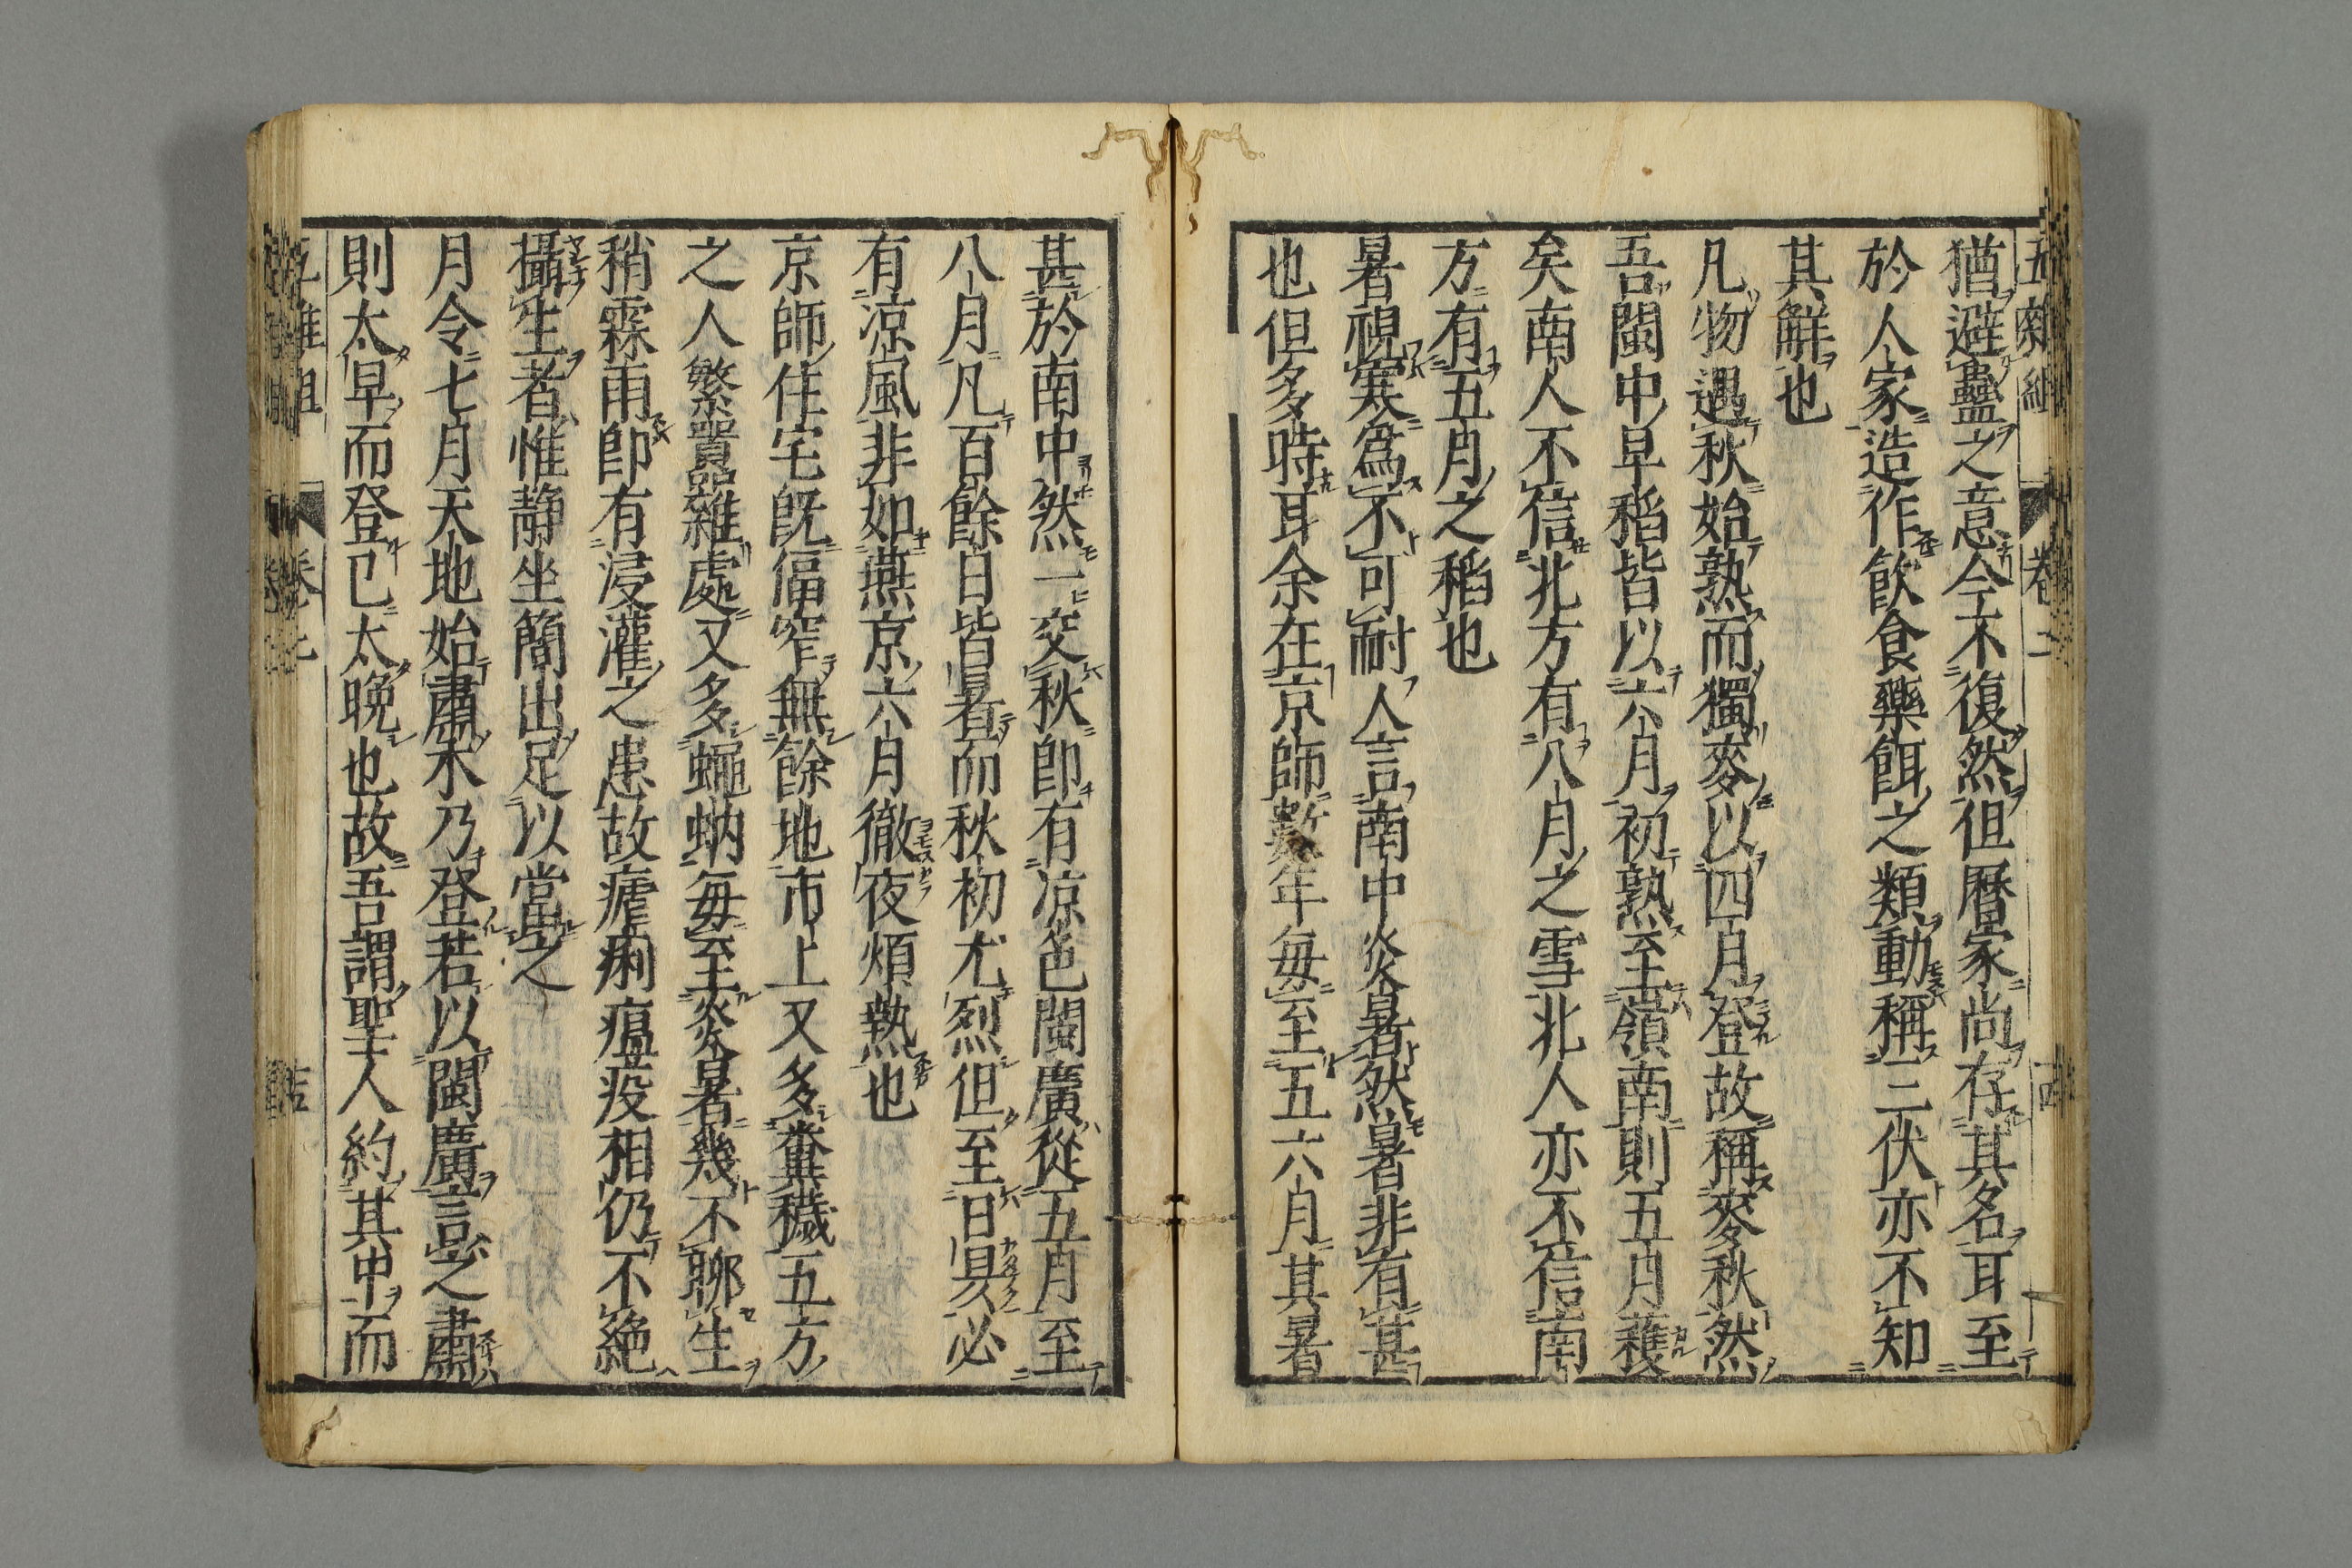 五雜組 卷二
猶避蠱之意今不復然但曆家尚存其名耳至
於人家造作飲食藥餌之類動稱三伏亦不知
其解也
凡物遇秋始熟而獨麥以四月登故稱麥秋然
吾閩中早稻皆以六月初熟至嶺南則五月穫
矣南人不信北方有八月之雪北人亦不信南
方有五月之稻也
暑視寒爲不可耐人言南中炎暑然暑非有甚
也但多時耳余在京師數年每至五六月其暑
甚於南中然一交秋即有凉色閩廣從五月至
八月凡百餘日皆暑而秋初尤烈但至日昃必
有凉風非如燕京六月徹夜煩熱也
京師住宅旣偪窄無餘地市上又多糞穢五方
之人繁嚚雜處又多蠅蚋每至炎暑幾不聊生
稍霖雨即有浸灌之患故瘧痢瘟疫相仍不絕
攝生者惟靜坐簡出足以當之
月令七月天地始肅禾乃登若以閩廣言之肅
則太早而登已太晚也故吾謂聖人約其中而